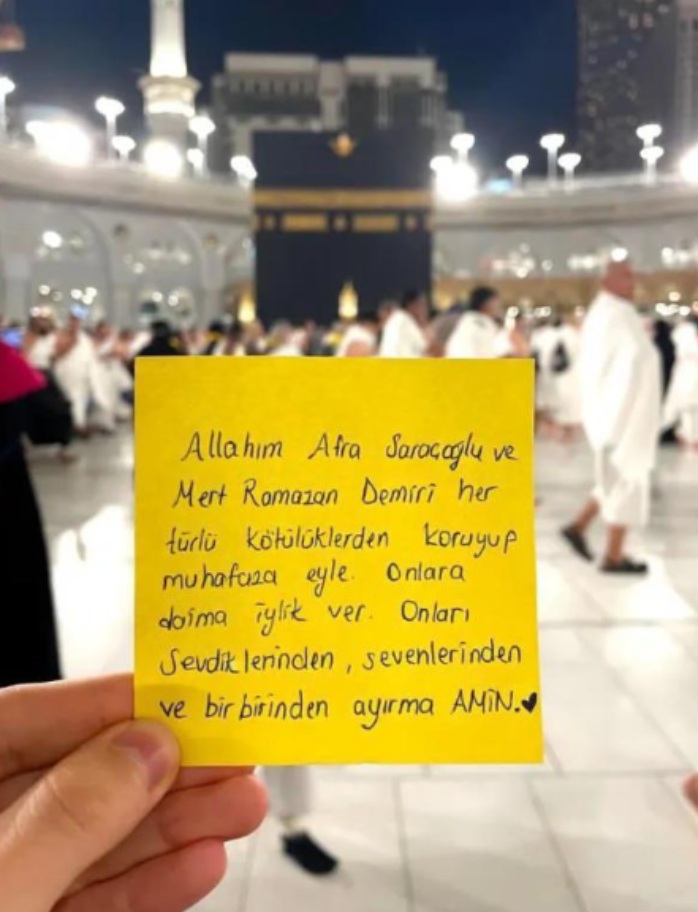 Allahım Afra Saraçoğlu ve
Mert Ramazan Demiri her
türlü kötülüklerden koruyup
muhafaza eyle. Onlara
daima iylik ver. Onları
Sevdiklerinden, sevenlerinden
ve birbirinden ayırma AMİN.♥